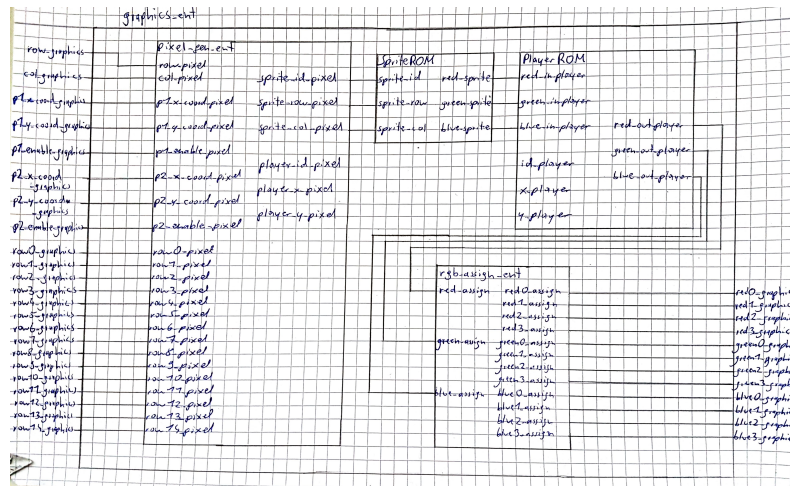 graphics_ent
row_graphics
col_graphics
p1_x_coord_graphics
p1_y_coord_graphics
p1_enable_graphics
p2_x_coord
_graphics
p2_y_coord
_graphics
p2_enable_graphics
row0_graphics
row1_graphics
row2_graphics
row3_graphics
row4_graphics
row5_graphics
row6_graphics
row7_graphics
row8_graphics
row9_graphics
row10_graphics
row11_graphics
row12_graphics
row13_graphics
row14_graphics
pixel_gen_ent
row_pixel
col_pixel
p1_x_coord_pixel
p1_y_coord_pixel
p1_enable_pixel
p2_x_coord_pixel
p2_y_coord_pixel
p2_enable_pixel
row0_pixel
row1_pixel
row2_pixel
row3_pixel
row4_pixel
row5_pixel
row6_pixel
row7_pixel
row8_pixel
row9_pixel
row10_pixel
row11_pixel
row12_pixel
row13_pixel
row14_pixel
sprite_id_pixel
sprite_row_pixel
sprite_col_pixel
player_id_pixel
player_x_pixel
player_y_pixel
SpriteROM
sprite_id red_sprite
sprite_row green_sprite
sprite_col blue_sprite
PlayerROM
red_in_player
green_in_player
blue_in_player
id_player
x_player
y_player
red_out_player
green_out_player
blue_out_player
rgb_assign_ent
red_assign
green_assign
blue_assign
red0_assign
red1_assign
red2_assign
red3_assign
green0_assign
green1_assign
green2_assign
green3_assign
blue0_assign
blue1_assign
blue2_assign
blue3_assign
red0_graphic
red1_graphic
red2_graphi
red3_graphic
green0_graph
green1_graph
green2_graph
green3_graph
blue0_graph
blue1_graph
blue2_graph
blue3_graph